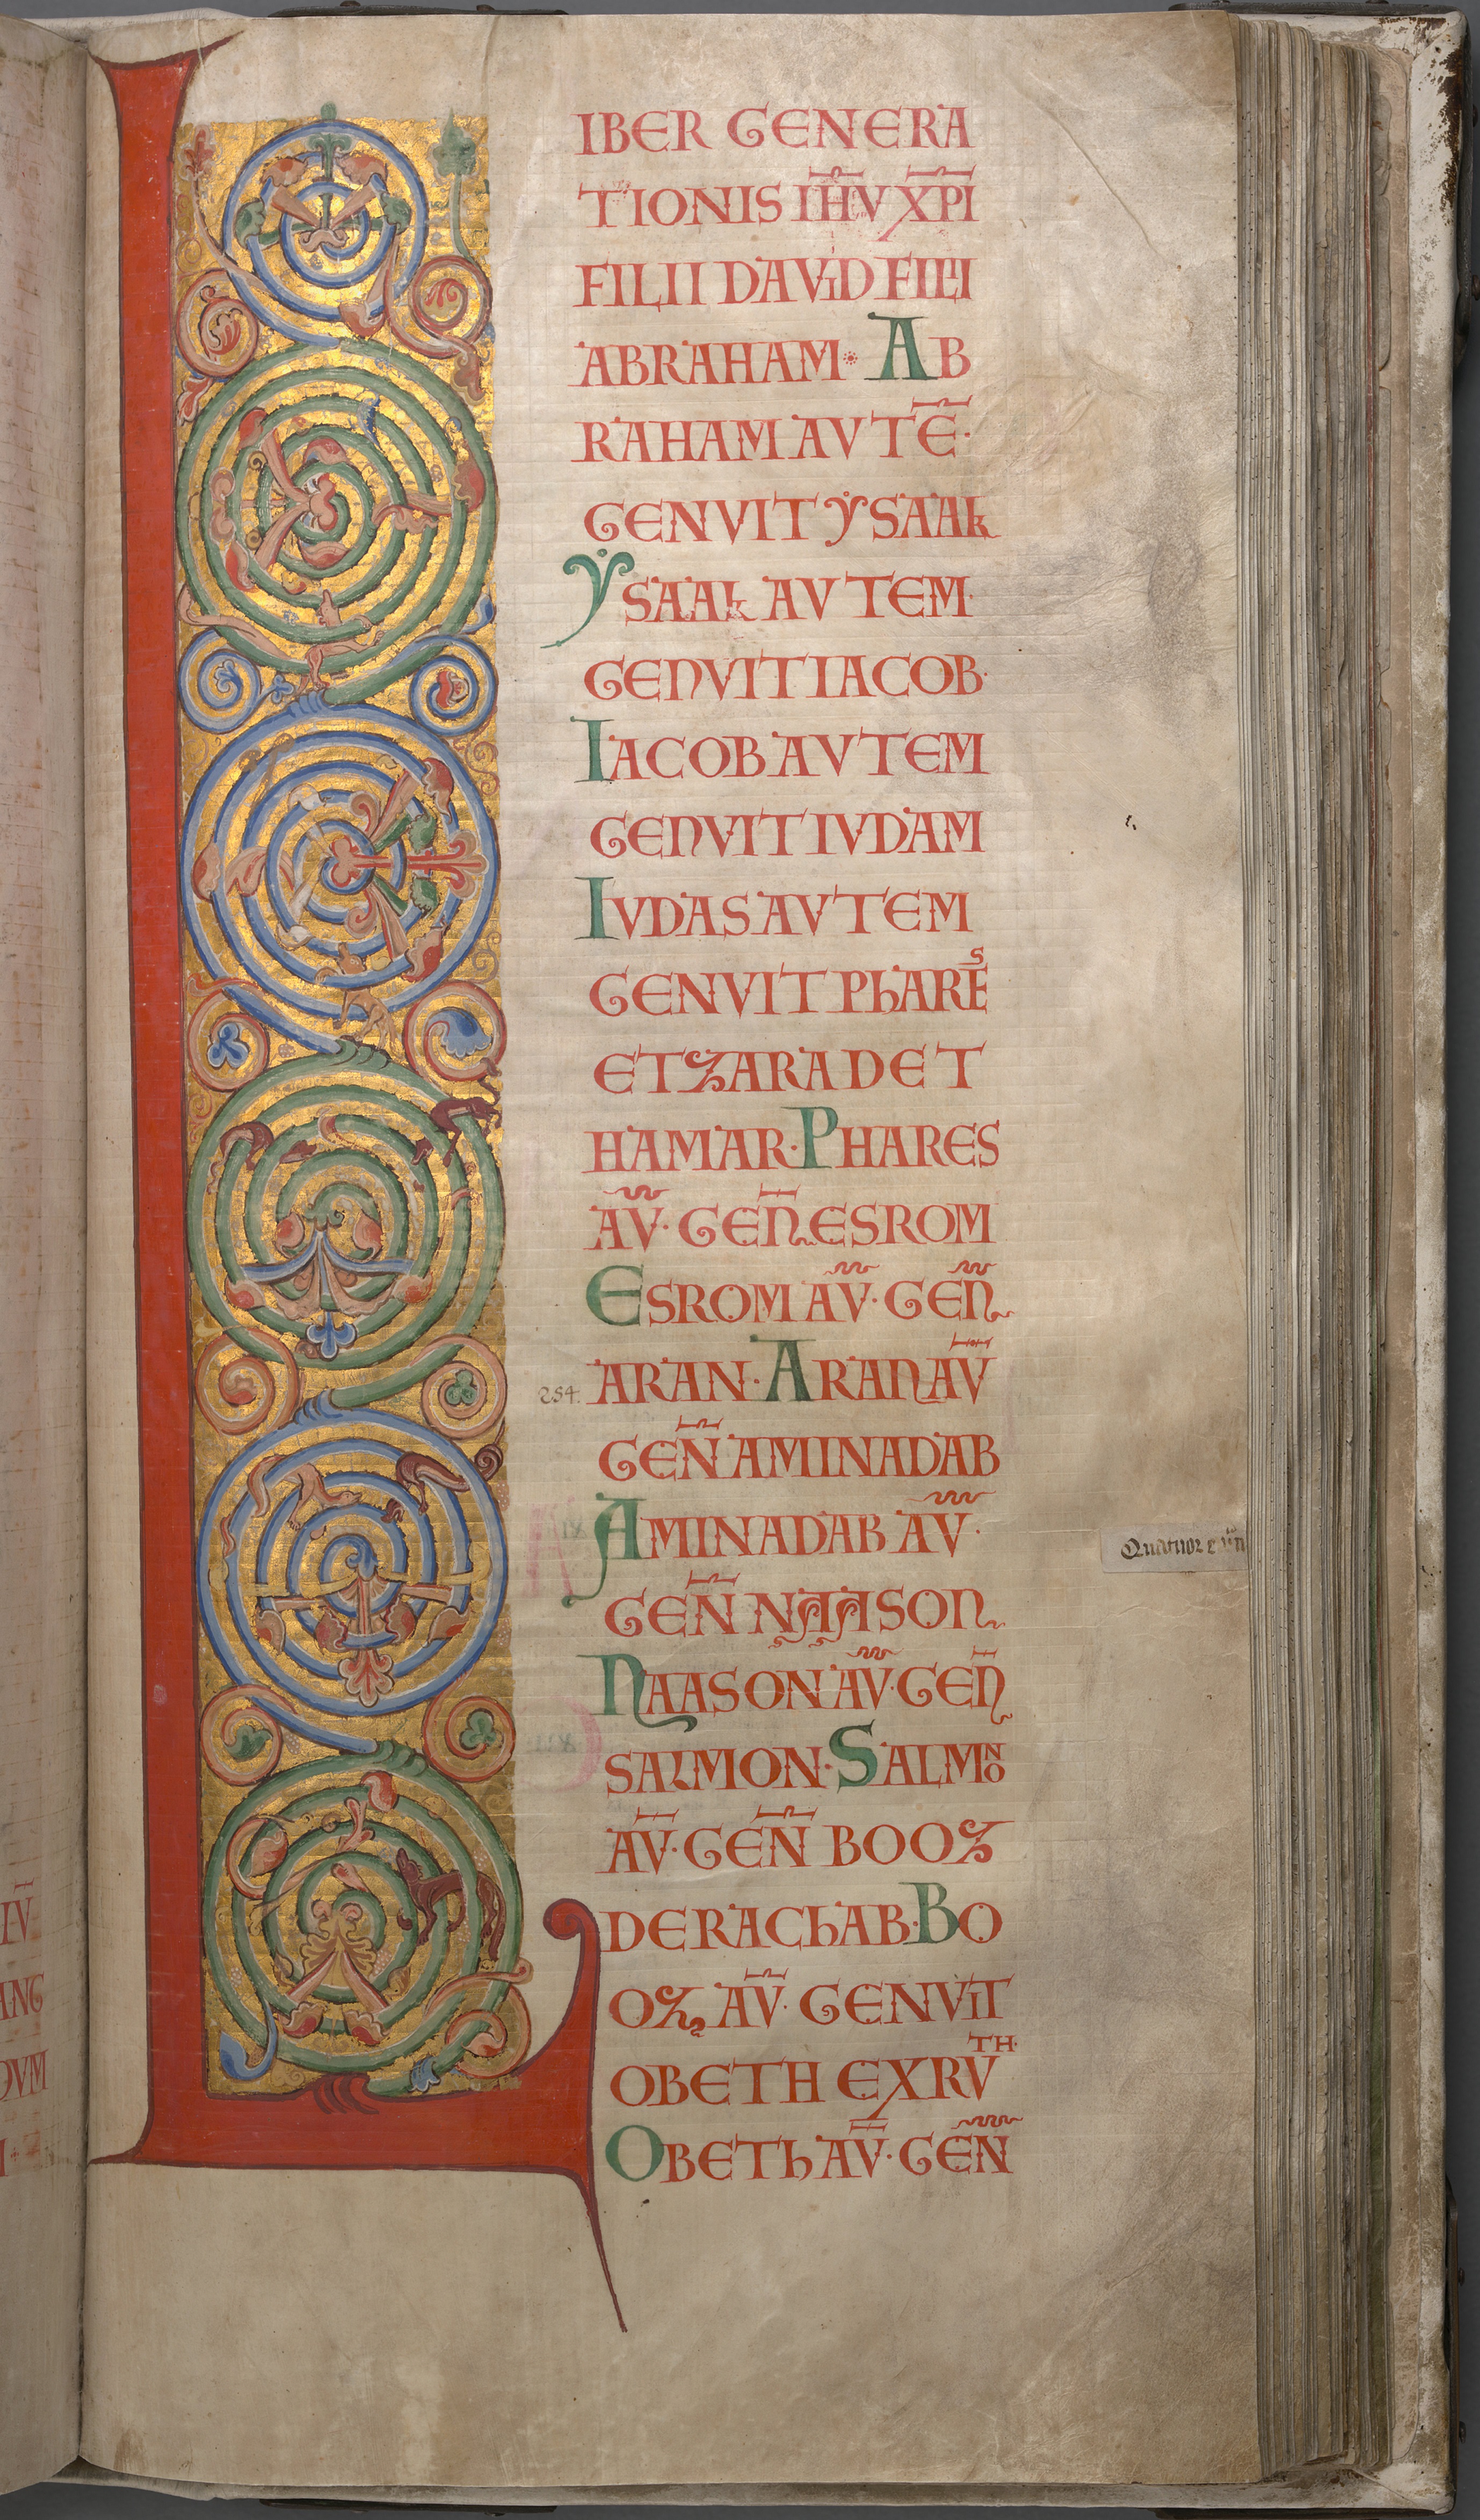 LIBER GENERA
TIONIS IHV̅ XP̅I
FILII DAViD FILII
ABRAHAM· AB
RAHAM AVTE̅·
GENVIT ẏSAAk
ẎSAAk AVTEM·
GENVIT IACOB·
IACOB AVTEM
GENVIT IVDAM
IVDAS AVTEM
GENVIT PhARES
ET ZARAD ET
HAMAR· PHARES
AV̅· GEN̅ ESROM
ESROM AV̅· GEN̅
ARAN· ARAN AV̅
254.
GEN̅ AMINADAB
AMINADAB AV̅·
GEN̅ NAASON
NAASON AV̅· GEN̅
SALMON· SALMON
AV̅· GEN̅ BOOZ
DE RAChAB· BO
OZ AV̅· GENViT
OBETH EX RVTH·
OBETh AV̅· GEN̅
Quatuor
ANG
QVM